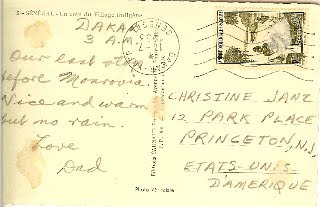 SÉNÉGAL - Un coin du Village indigène
DAKAR
3 A.M.
Our last stop
before Monrovia.
Nice and warm
but no rain.
Love
Dad
DAKAR
CHRISTINE JANZ
12 PARK PLACE
PRINCETON, N.J.
ETATS-UNIS
D'AMERIQUE
Photo véritable